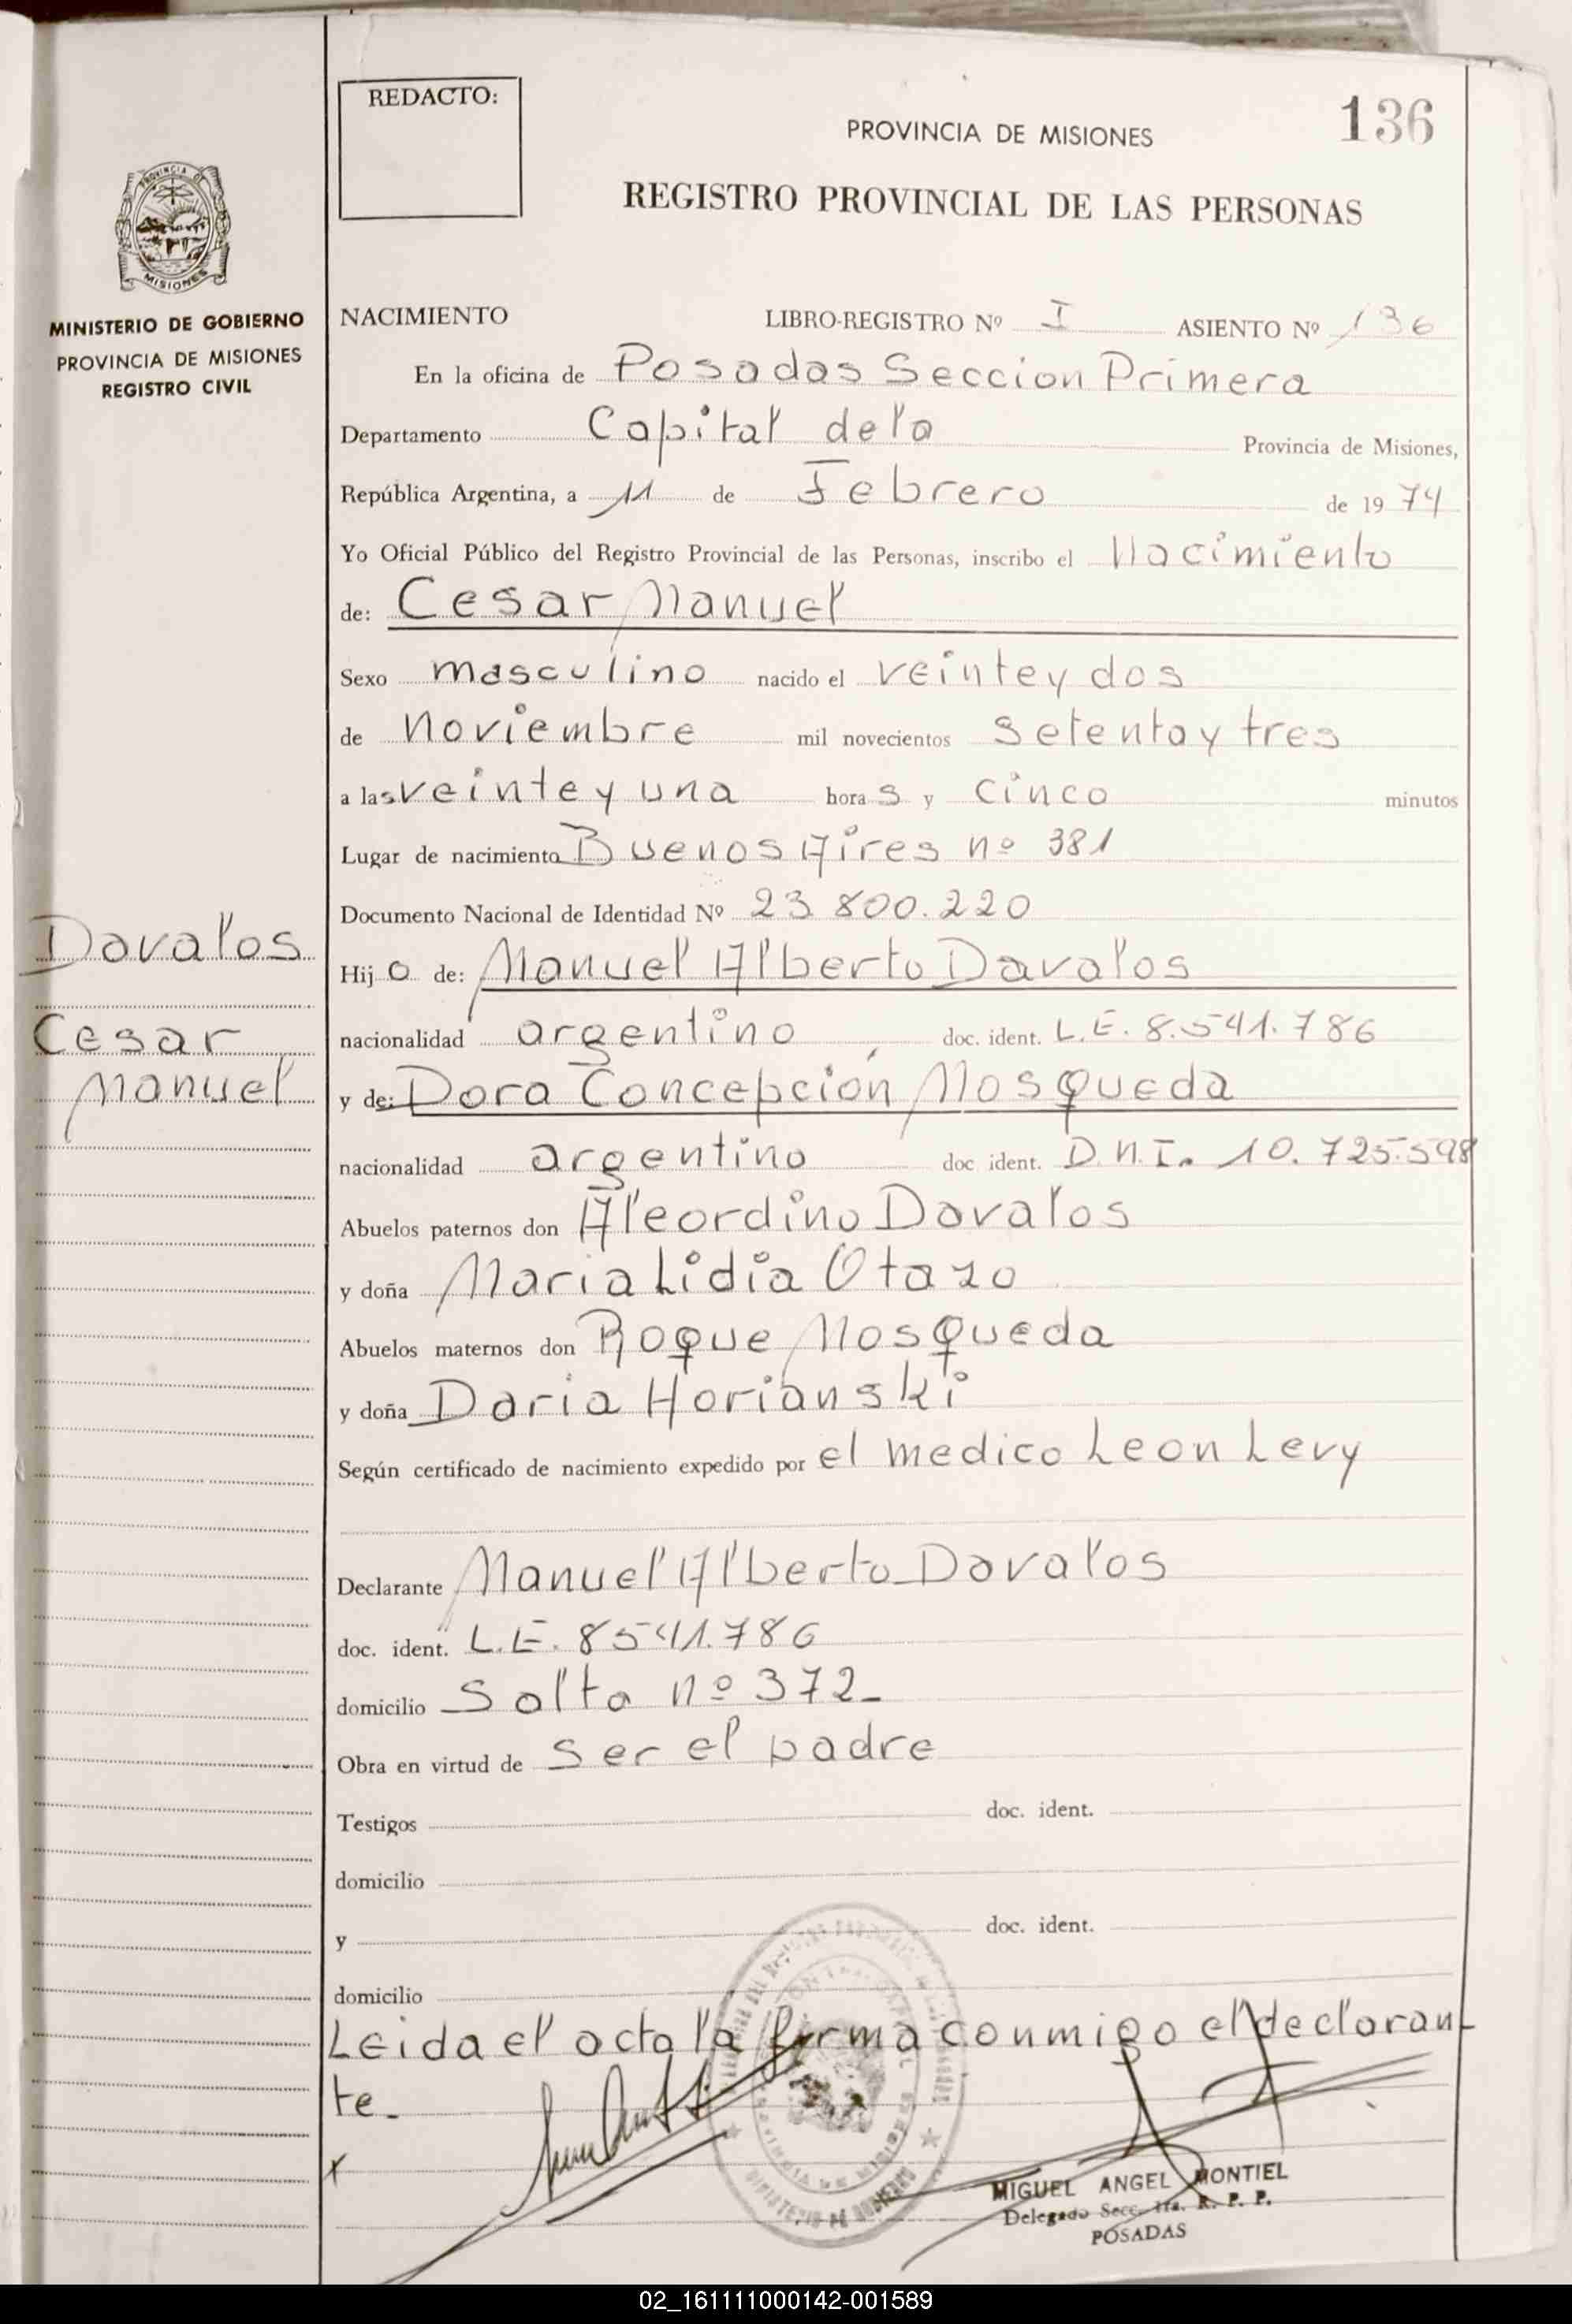 REDACTO:
136
PROVINCIA DE MISIONES
REGISTRO PROVINCIAL DE LAS PERSONAS
MISIONES
MINISTERIO DE GOBIERNO
PROVINCIA DE MISIONES
REGISTRO CIVIL
NACIMIENTO LIBRO-REGISTRO Nº I ASIENTO Nº 136
En la oficina de Posadas Seccion Primera
Departamento Capital de la Provincia de Misiones,
República Argentina, a 11 de Febrero de 1974
Yo Oficial Público del Registro Provincial de las Personas, inscribo el Nacimiento
de: Cesar Manuel
Sexo masculino nacido el veinte y dos
de noviembre mil novecientos setenta y tres
a las veinte y una horas y cinco minutos
Lugar de nacimiento Buenos Aires nº 381
Documento Nacional de Identidad Nº 23.800.220
Davalos
Cesar
Manuel
Hijo de: Manuel Alberto Davalos
nacionalidad argentino doc. ident. L.E. 8.541.786
y de: Dora Concepción Mosqueda
nacionalidad argentino doc ident. D.N.I. 10.725.598
Abuelos paternos don Aleordino Davalos
y doña Maria Lidia Otazo
Abuelos maternos don Roque Mosqueda
y doña Daria Horianski
Según certificado de nacimiento expedido por el medico Leon Levy
Declarante Manuel Alberto Davalos
doc. ident. L.E. 8541.786
domicilio Salta nº 372-
Obra en virtud de ser el padre
Testigos doc. ident.
domicilio
y doc. ident.
domicilio
Leida el acta la firma conmigo el declaran-
te-
x
MIGUEL ANGEL MONTIEL
Delegado Secc. 1ra. R. P. P.
POSADAS
02_161111000142-001589